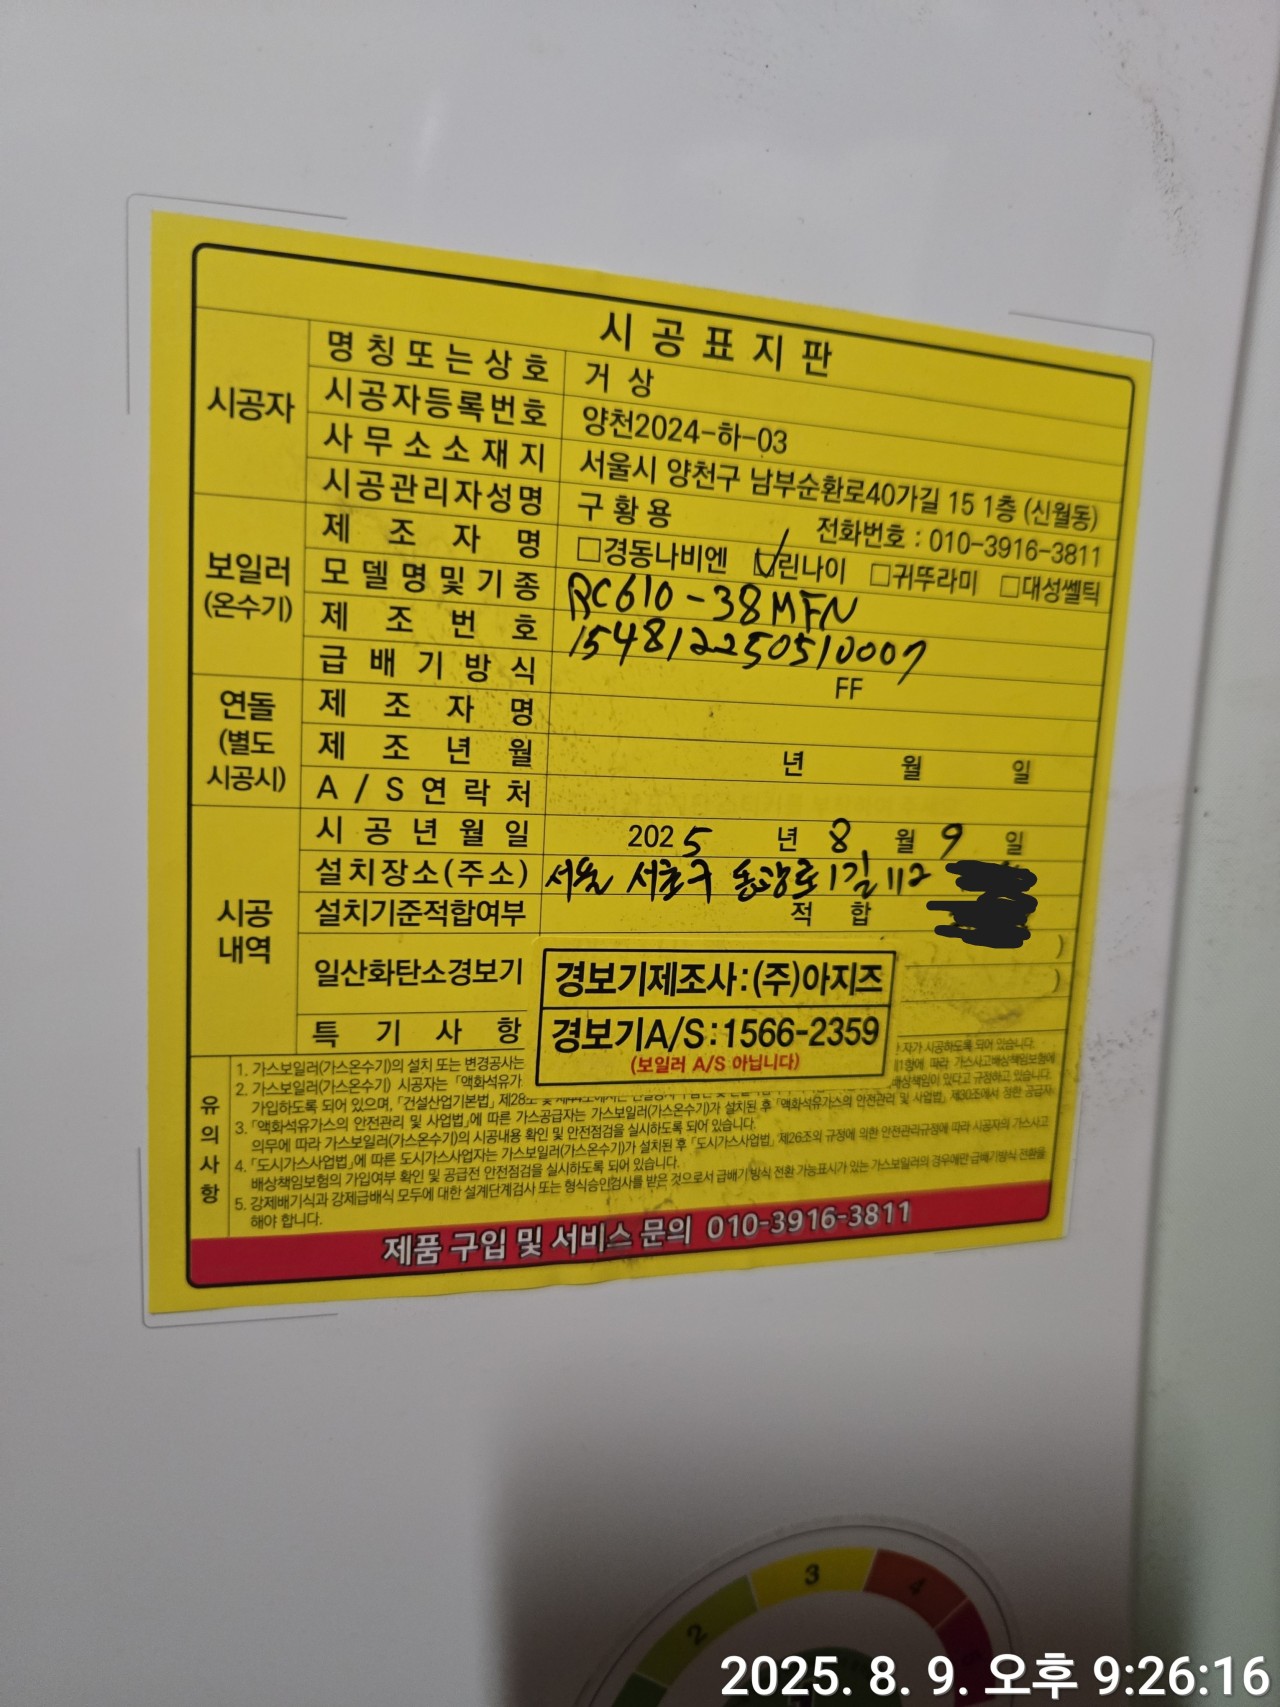 시공표지판
시공자
명칭또는상호 거상
시공자등록번호 양천2024-하-03
사무소소재지 서울시 양천구 남부순환로40가길 15 1층 (신월동)
시공관리자성명 구황용 전화번호 : 010-3916-3811
보일러
(온수기)
제조자명 □경동나비엔 ☑린나이 □귀뚜라미 □대성쎌틱
모델명및기종 RC610-38MFN
제조번호 154812250510007
급배기방식 FF
연돌
(별도
시공시)
제조자명
제조년월 년 월 일
A/S연락처
시공
내역
시공년월일 2025년 8월 9일
설치장소(주소) 서울 서초구 동광로1길 112
설치기준적합여부 적합
일산화탄소경보기 )
)
경보기제조사:(주)아지즈
경보기A/S:1566-2359
(보일러 A/S 아닙니다)
특기사항
유의사항
1. 가스보일러(가스온수기)의 설치 또는 변경공사는 자가 시공하도록 되어 있습니다.
2. 가스보일러(가스온수기) 시공자는 「액화석유가 제1항에 따라 가스사고배상책임보험에
가입하도록 되어 있으며, 「건설산업기본법」 제28조 배상책임이 있다고 규정하고 있습니다.
3. 「액화석유가스의 안전관리 및 사업법」에 따른 가스공급자는 가스보일러(가스온수기)가 설치된 후 「액화석유가스의 안전관리 및 사업법」 제30조에서 정한 공급자
의무에 따라 가스보일러(가스온수기)의 시공내용 확인 및 안전점검을 실시하도록 되어 있습니다.
4. 「도시가스사업법」에 따른 도시가스사업자는 가스보일러(가스온수기)가 설치된 후 「도시가스사업법」 제26조의 규정에 의한 안전관리규정에 따라 시공자의 가스사고
배상책임보험의 가입여부 확인 및 공급전 안전점검을 실시하도록 되어 있습니다.
5. 강제배기식과 강제급배식 모두에 대한 설계단계검사 또는 형식승인검사를 받은 것으로서 급배기 방식 전환 가능표시가 있는 가스보일러의 경우에만 급배기방식 전환을
해야 합니다.
제품 구입 및 서비스 문의 010-3916-3811
2
3
4
2025. 8. 9. 오후 9:26:16